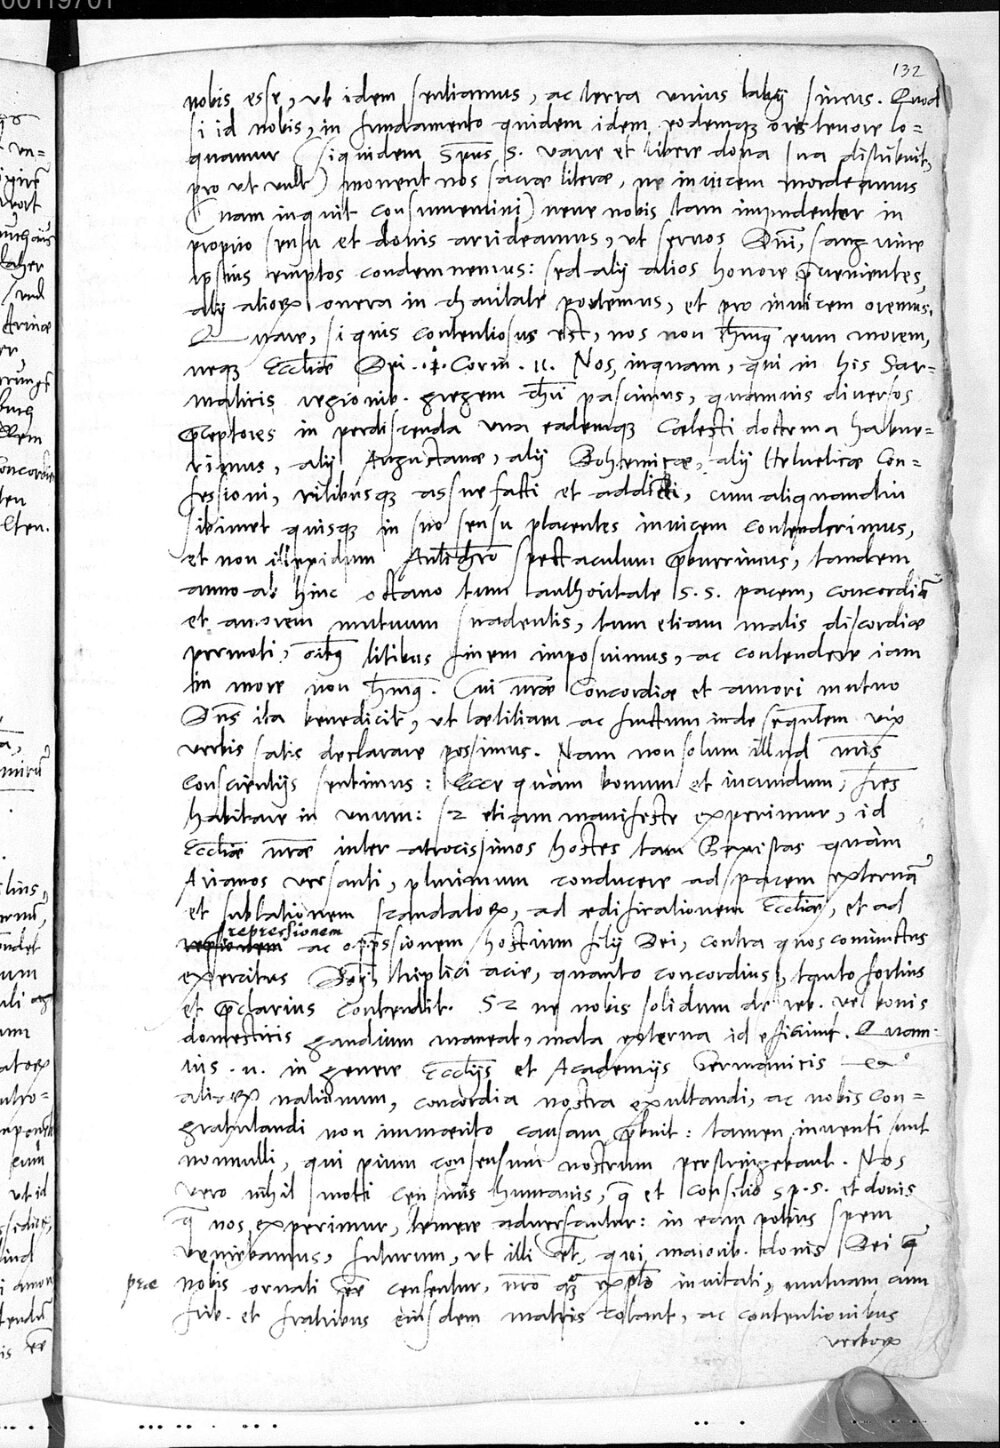 132
nobis esse, ut idem sentiamus, ac terra unius labij simus. Quod
si id nobis, in fundamento quidem idem eodemque oris tenore lo=
quamur (siquidem Spũs S. varie et libere dona sua distribuit,
pro ut vult) monent nos sacrae literae, ne invicem mordeamus
(nam inquit consumemini) neve nobis tam impudenter in
proprio sensu et donis arrideamus, ut servos Dñi, sanguine
ipsius emptos condemnemus: sed alij alios honore p̃venientes,
alij aliorum onera in charitate portemus, et pro invicem oremus.
Quare, si quis contentiosus est, nos non hẽmus eum morem,
neque Eccliæ Dei. 1. Corin. 11. Nos, inquam, qui in his Sar=
maticis regionib. gregem Chri pascimus, quamvis diversos
p̃ceptores in perdiscenda una eademque Cœlesti doctrina habue=
rimus, alij Augustanæ, alij Bohemicæ, alij Helveticæ Con=
fessioni, ritibusque assuefacti et addicti, cum aliquandiu
sibimet quisque in suo sensu placentes invicem contenderimus,
et non illepidum Antichro spectaculum p̃buerimus, tandem
anno ab hinc octavo tum authoritate S. S. pacem, concordiã
et amorem mutuum suadentis, tum etiam malis discordiæ
permoti, oĩbus litibus finem imposuimus, ac contendere iam
in more non hẽmus. Cui nr̃æ Concordiæ et amori mutuo
Dñs ita benedicit, ut lætitiam ac fructum inde sequẽtem vix
verbis satis declarare possimus. Nam non solum illud nr̃is
conscientijs sentimus: Ecce quàm bonum et iucundum, fr̃es
habitare in unum: sz etiam manifeste experimur, id
Eccliæ nr̃æ inter atrocissimos hostes tam Papistas quàm
Arianos versanti, plurimum conducere ad pacem externã
et sublationem scandalorum, ad ædificationem Eccliæ, et ad
repressionem
ac opp̃ssionem hostium filij Dei, contra quos coniunctus
exercitus triplici acie, quanto concordius, tanto fortius
et p̃clarius contendit. Sz ne nobis solidum de reb. vel bonis
domesticis gaudium maneat, mala externa id efficiunt. Quam=
vis .n. in genere Ecclijs et Academijs Germanicis
aliorum nationum, concordia nostra exultandi, ac nobis con=
gratulandi non immerito causam p̃buit: tamen inventi sunt
nonnulli, qui pium consensum nostrum perstringebant. Nos
vero nihil moti censuris humanis, q̃ et consilio sp. s. et donis
q̃ nos experimur, temere adversantur: in eam potius spem
veniebamus, futurum, ut illi et, qui maiorib. donis Dei q̃
præ nobis ornati eẽ censentur, nr̃o quoque exẽplo invitati, mutuam cum
frib. et fratribus eiusdem matris colant, ac contentionibus
verborum